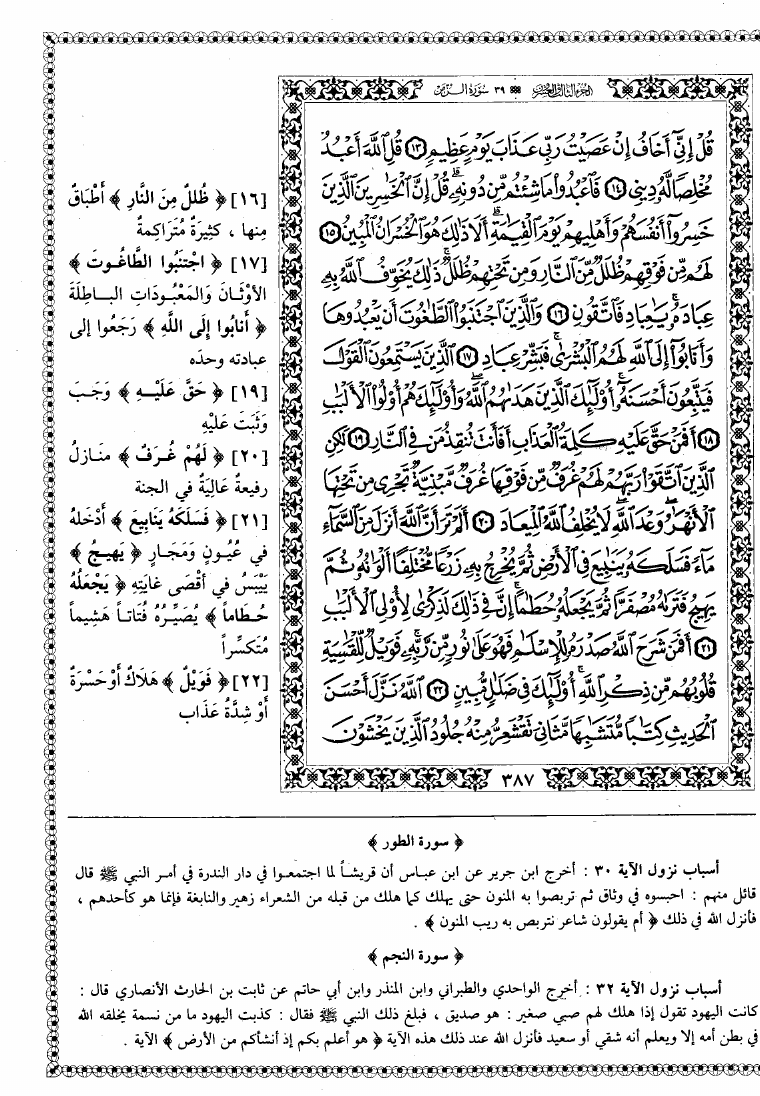 الجزء الثالث والعشرون ٣٩ سورة الزمر
قُلْ إِنِّىٓ أَخَافُ إِنْ عَصَيْتُ رَبِّى عَذَابَ يَوْمٍ عَظِيمٍ ١٣ قُلِ ٱللَّهَ أَعْبُدُ
مُخْلِصًا لَّهُۥ دِينِى ١٤ فَٱعْبُدُوا۟ مَا شِئْتُم مِّن دُونِهِۦ قُلْ إِنَّ ٱلْخَٰسِرِينَ ٱلَّذِينَ
خَسِرُوٓا۟ أَنفُسَهُمْ وَأَهْلِيهِمْ يَوْمَ ٱلْقِيَٰمَةِ أَلَا ذَٰلِكَ هُوَ ٱلْخُسْرَانُ ٱلْمُبِينُ ١٥
لَهُم مِّن فَوْقِهِمْ ظُلَلٌ مِّنَ ٱلنَّارِ وَمِن تَحْتِهِمْ ظُلَلٌ ذَٰلِكَ يُخَوِّفُ ٱللَّهُ بِهِۦ
عِبَادَهُۥ يَٰعِبَادِ فَٱتَّقُونِ ١٦ وَٱلَّذِينَ ٱجْتَنَبُوا۟ ٱلطَّٰغُوتَ أَن يَعْبُدُوهَا
وَأَنَابُوٓا۟ إِلَى ٱللَّهِ لَهُمُ ٱلْبُشْرَىٰ فَبَشِّرْ عِبَادِ ١٧ ٱلَّذِينَ يَسْتَمِعُونَ ٱلْقَوْلَ
فَيَتَّبِعُونَ أَحْسَنَهُۥٓ أُو۟لَٰٓئِكَ ٱلَّذِينَ هَدَىٰهُمُ ٱللَّهُ وَأُو۟لَٰٓئِكَ هُمْ أُو۟لُوا۟ ٱلْأَلْبَٰبِ
١٨ أَفَمَنْ حَقَّ عَلَيْهِ كَلِمَةُ ٱلْعَذَابِ أَفَأَنتَ تُنقِذُ مَن فِى ٱلنَّارِ ١٩ لَٰكِنِ
ٱلَّذِينَ ٱتَّقَوْا۟ رَبَّهُمْ لَهُمْ غُرَفٌ مِّن فَوْقِهَا غُرَفٌ مَّبْنِيَّةٌ تَجْرِى مِن تَحْتِهَا
ٱلْأَنْهَٰرُ وَعْدَ ٱللَّهِ لَا يُخْلِفُ ٱللَّهُ ٱلْمِيعَادَ ٢٠ أَلَمْ تَرَ أَنَّ ٱللَّهَ أَنزَلَ مِنَ ٱلسَّمَآءِ
مَآءً فَسَلَكَهُۥ يَنَٰبِيعَ فِى ٱلْأَرْضِ ثُمَّ يُخْرِجُ بِهِۦ زَرْعًا مُّخْتَلِفًا أَلْوَٰنُهُۥ ثُمَّ
يَهِيجُ فَتَرَىٰهُ مُصْفَرًّا ثُمَّ يَجْعَلُهُۥ حُطَٰمًا إِنَّ فِى ذَٰلِكَ لَذِكْرَىٰ لِأُو۟لِى ٱلْأَلْبَٰبِ
٢١ أَفَمَن شَرَحَ ٱللَّهُ صَدْرَهُۥ لِلْإِسْلَٰمِ فَهُوَ عَلَىٰ نُورٍ مِّن رَّبِّهِۦ فَوَيْلٌ لِّلْقَٰسِيَةِ
قُلُوبُهُم مِّن ذِكْرِ ٱللَّهِ أُو۟لَٰٓئِكَ فِى ضَلَٰلٍ مُّبِينٍ ٢٢ ٱللَّهُ نَزَّلَ أَحْسَنَ
ٱلْحَدِيثِ كِتَٰبًا مُّتَشَٰبِهًا مَّثَانِىَ تَقْشَعِرُّ مِنْهُ جُلُودُ ٱلَّذِينَ يَخْشَوْنَ
٣٨٧
[١٦] ﴿ ظُلَلٌ مِنَ النَّارِ ﴾ أَطْبَاقٌ
مِنها ، كثِيرَةٌ مُتَرَاكِمةٌ
[١٧] ﴿ اجْتَنَبُوا الطَّاغُوتَ ﴾
الأوْثَانَ وَالمَعْبُودَاتِ البَاطِلَةَ
﴿ أَنابُوا إِلَى اللَّهِ ﴾ رَجَعُوا إلى
عبادته وحدَه
[١٩] ﴿ حَقَّ عَلَيْهِ ﴾ وَجَبَ
وَثَبَتَ عَلَيْهِ
[٢٠] ﴿ لَهُمْ غُرَفٌ ﴾ منَازِلُ
رفيعةٌ عَالِيَةٌ في الجنة
[٢١] ﴿ فَسَلَكَهُ يَنَابِيعَ ﴾ أَدْخَلهُ
في عُيُونٍ وَمَجَارٍ ﴿ يَهِيجُ ﴾
يَيْبَسُ في أقْصَى غايَتِهِ ﴿ يَجْعَلُهُ
حُطَاماً ﴾ يُصَيِّرُهُ فُتَاتاً هَشِيماً
مُتكسِّراً
[٢٢] ﴿ فَوَيْلٌ ﴾ هَلَاكٌ أوْ حَسْرَةٌ
أوْ شِدَّةُ عَذَاب
﴿ سورة الطور ﴾
أسباب نزول الآية ٣٠ : أخرج ابن جرير عن ابن عباس أن قريشاً لما اجتمعوا في دار الندرة في أمر النبي ﷺ قال
قائل منهم : احبسوه في وثاق ثم تربصوا به المنون حتى يهلك كما هلك من قبله من الشعراء زهير والنابغة فإنما هو كأحدهم ،
فأنزل الله في ذلك ﴿ أم يقولون شاعر نتربص به ريب المنون ﴾ .
﴿ سورة النجم ﴾
أسباب نزول الآية ٣٢ : أخرج الواحدي والطبراني وابن المنذر وابن أبي حاتم عن ثابت بن الحارث الأنصاري قال :
كانت اليهود تقول إذا هلك لهم صبي صغير : هو صديق ، فبلغ ذلك النبي ﷺ فقال : كذبت اليهود ما من نسمة يخلقه الله
في بطن أمه إلا ويعلم أنه شقي أو سعيد فأنزل الله عند ذلك هذه الآية ﴿ هو أعلم بكم إذ أنشأكم من الأرض ﴾ الآية .